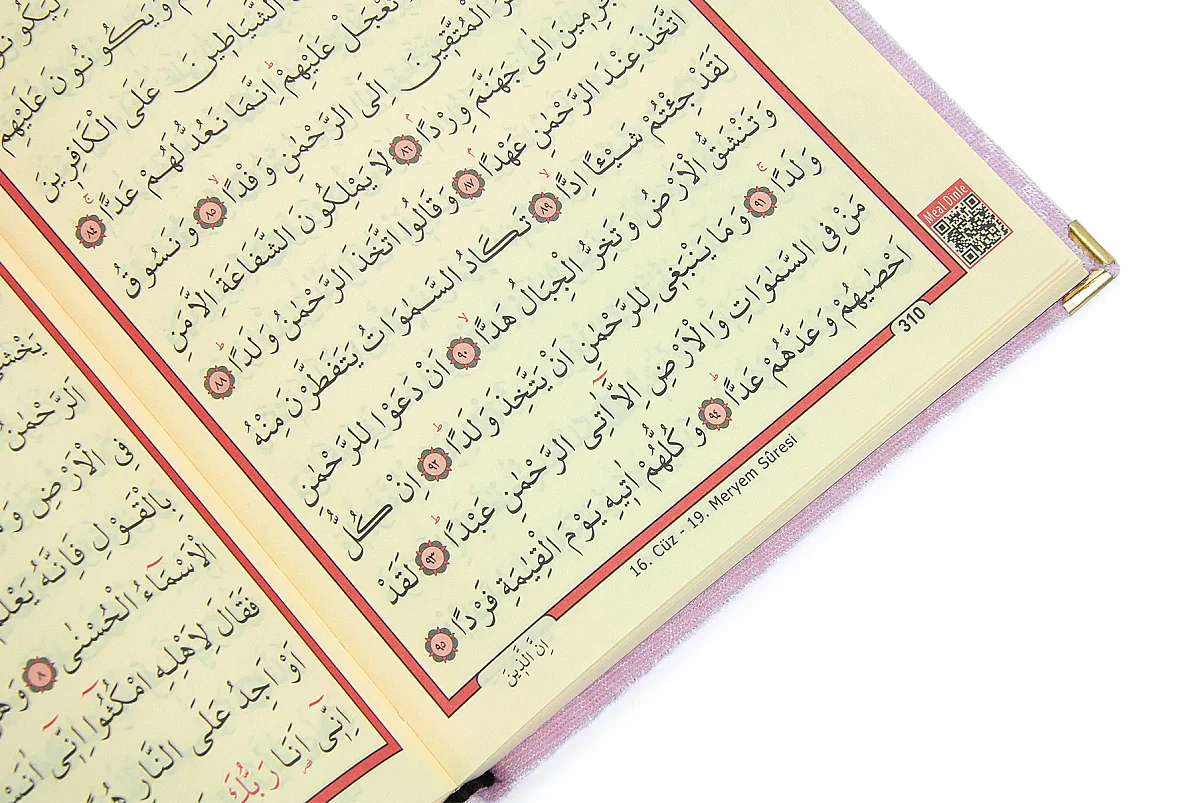 وَيَكُونُونَ عَلَيْهِمْ
الشَّيَاطٖينَ عَلَى الْكَافِرٖينَ
تَعْجَلْ عَلَيْهِمْ اِنَّمَا نَعُدُّ لَهُمْ عَدًّا ﴿٨٤﴾
الْمُتَّقٖينَ اِلَى الرَّحْمٰنِ وَفْدًا ﴿٨٥﴾ وَنَسُوقُ
اِلٰى جَهَنَّمَ وِرْدًا ﴿٨٦﴾ لَا يَمْلِكُونَ الشَّفَاعَةَ اِلَّا مَنِ
اتَّخَذَ عِنْدَ الرَّحْمٰنِ عَهْدًا ﴿٨٧﴾ وَقَالُوا اتَّخَذَ الرَّحْمٰنُ وَلَدًا ﴿٨٨﴾
لَقَدْ جِئْتُمْ شَيْـًٔا اِدًّا ﴿٨٩﴾ تَكَادُ السَّمٰوَاتُ يَتَفَطَّرْنَ مِنْهُ
وَتَنْشَقُّ الْاَرْضُ وَتَخِرُّ الْجِبَالُ هَدًّا ﴿٩٠﴾ اَنْ دَعَوْا لِلرَّحْمٰنِ
وَلَدًا ﴿٩١﴾ وَمَا يَنْبَغٖي لِلرَّحْمٰنِ اَنْ يَتَّخِذَ وَلَدًا ﴿٩٢﴾ اِنْ كُلُّ
مَنْ فِي السَّمٰوَاتِ وَالْاَرْضِ اِلَّٓا اٰتِي الرَّحْمٰنِ عَبْدًا ﴿٩٣﴾ لَقَدْ
اَحْصٰيهُمْ وَعَدَّهُمْ عَدًّا ﴿٩٤﴾ وَكُلُّهُمْ اٰتٖيهِ يَوْمَ الْقِيٰمَةِ فَرْدًا ﴿٩٥﴾
اِنَّ الَّذٖينَ
310
16. Cüz - 19. Meryem Sûresi
Meal Dinle
يَخْشٰى
اَلرَّحْمٰنُ
فِي الْاَرْضِ
بِالْقَوْلِ فَاِنَّهُ يَعْلَمُ
الْاَسْمَٓاءُ الْحُسْنٰى ﴿٨﴾
فَقَالَ لِاَهْلِهِ امْكُثُٓوا اِنّٖٓي
اَوْ اَجِدُ عَلَى النَّارِ
اِنّٖٓي اَنَا رَبُّكَ